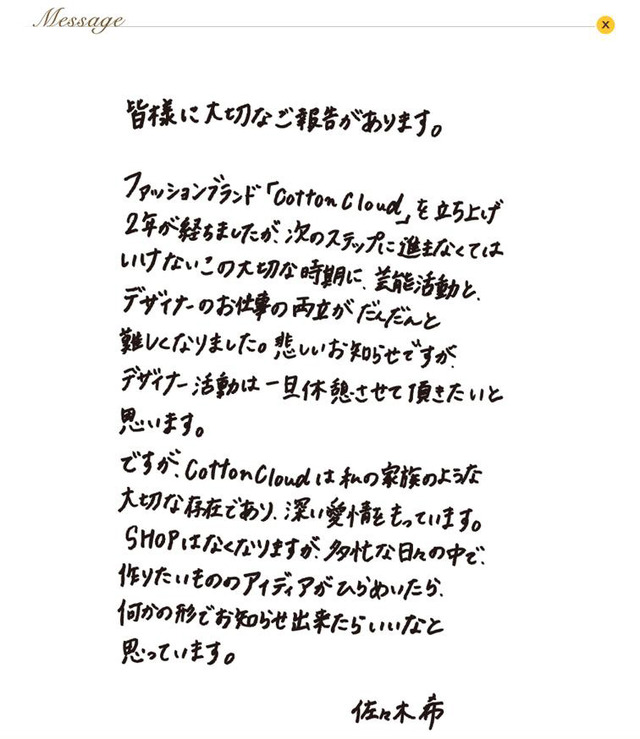 Message
x
皆様に大切なご報告があります。
ファッションブランド「Cotton Cloud」を立ち上げ
2年が経ちましたが、次のステップに進まなくては
いけないこの大切な時期に、芸能活動と、
デザイナーのお仕事の両立がだんだんと
難しくなりました。悲しいお知らせですが、
デザイナー活動は一旦休憩させて頂きたいと
思います。
ですが、Cotton Cloudは私の家族のような
大切な存在であり、深い愛情をもっています。
SHOPはなくなりますが、多忙な日々の中で、
作りたいもののアイディアがひらめいたら、
何かの形でお知らせ出来たらいいなと
思っています。
佐々木希